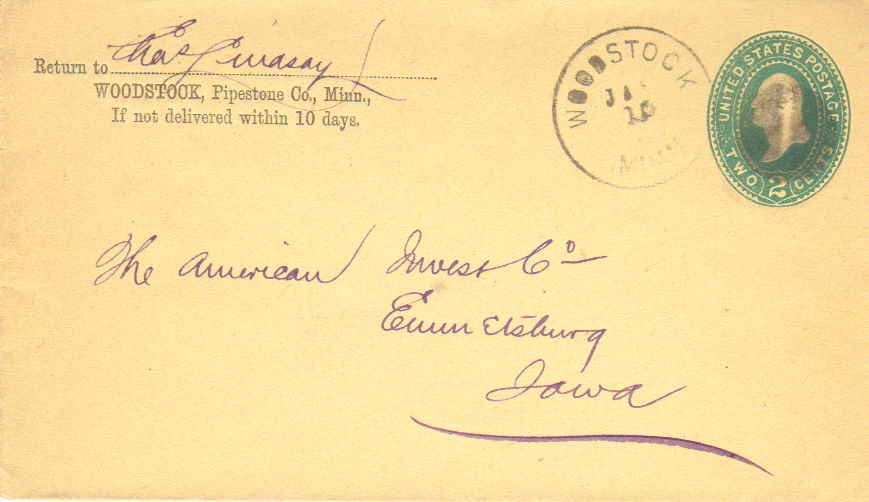 Return to Chas Lindsay
WOODSTOCK, Pipestone Co., Minn.,
If not delivered within 10 days.
WOODSTOCK
JA
10
MINN
UNITED STATES POSTAGE
TWO 2 CENTS
The American Invest Co
Emmetsburg
Iowa